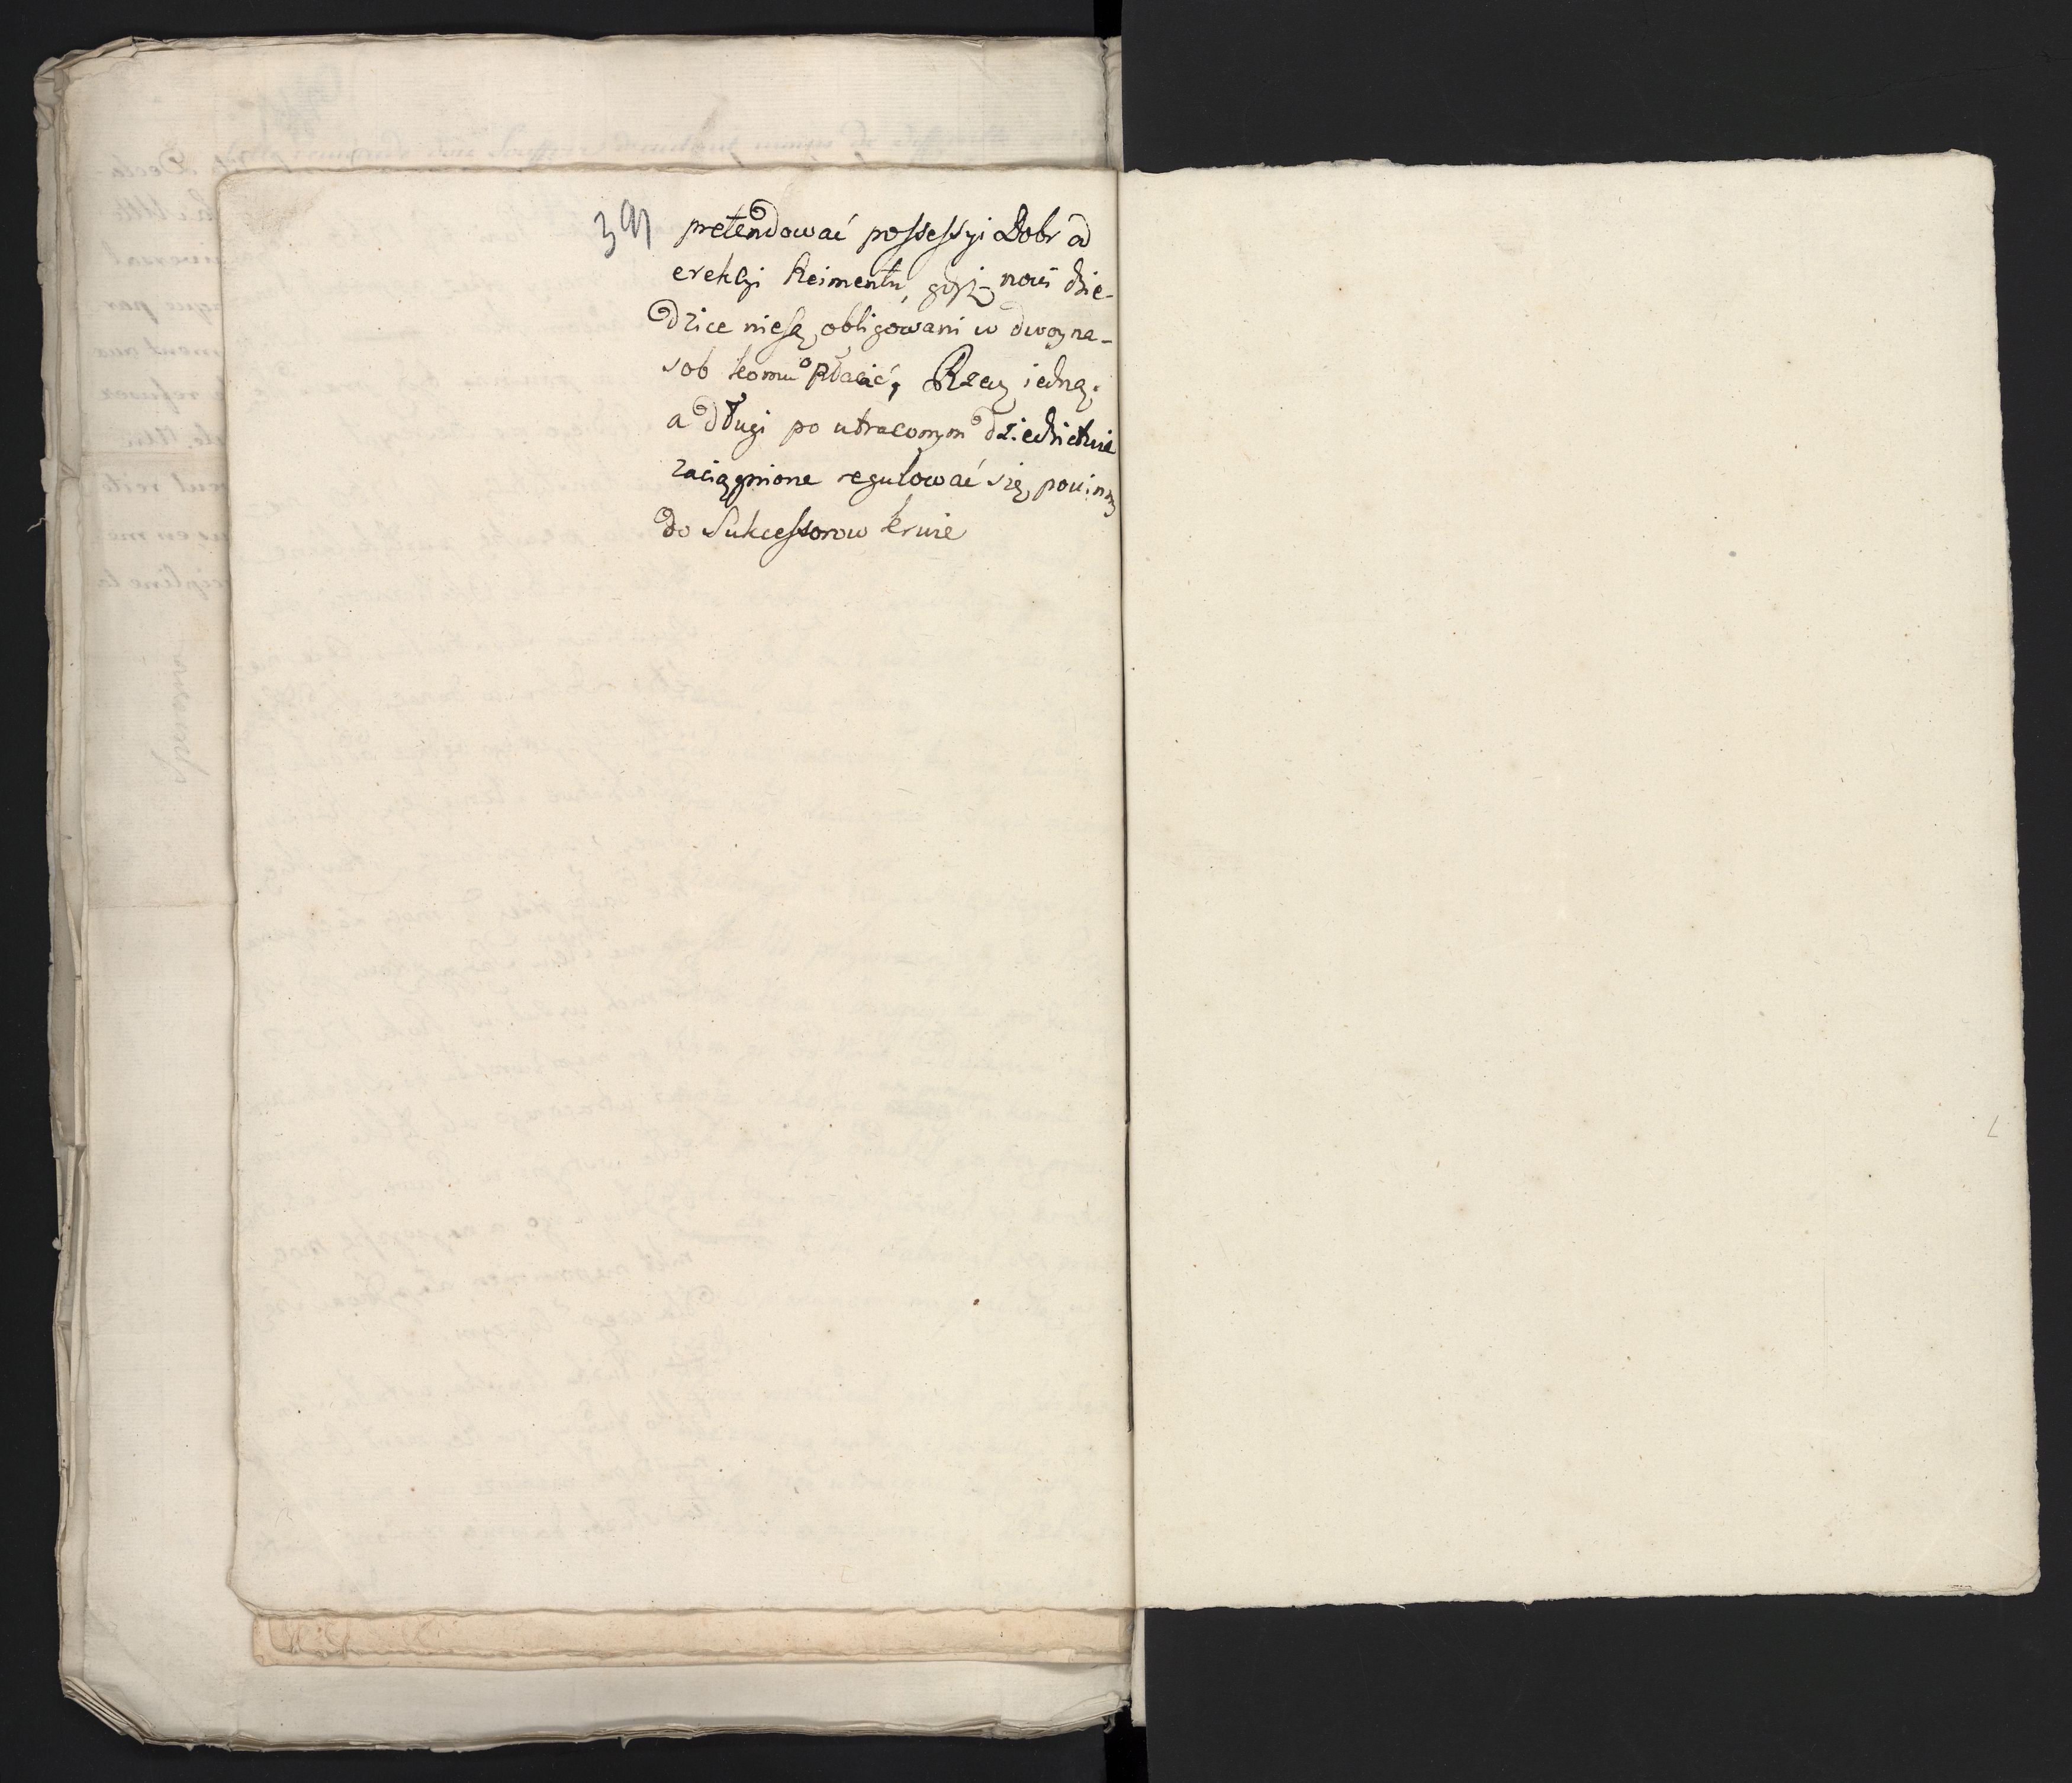 391
pretendować possessyi Dobr od
erekcyi Reimentu, gdyż nowi dzie-
dzice niesą obligowani w dwoyna-
sob komu płacić, Rzecz iedną.
a długi po utraconym dziedzictwie
zaciągnione regulować się powinny
do Sukcessorow krwie